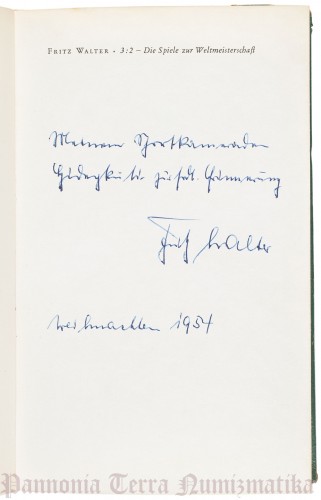 FRITZ WALTER • 3:2 – Die Spiele zur Weltmeisterschaft
Meinem Sportkameraden
Hidegkuti zur frdl. Erinnerung
Fritz Walter
Weihnachten 1954
Pannonia Terra Numizmatika